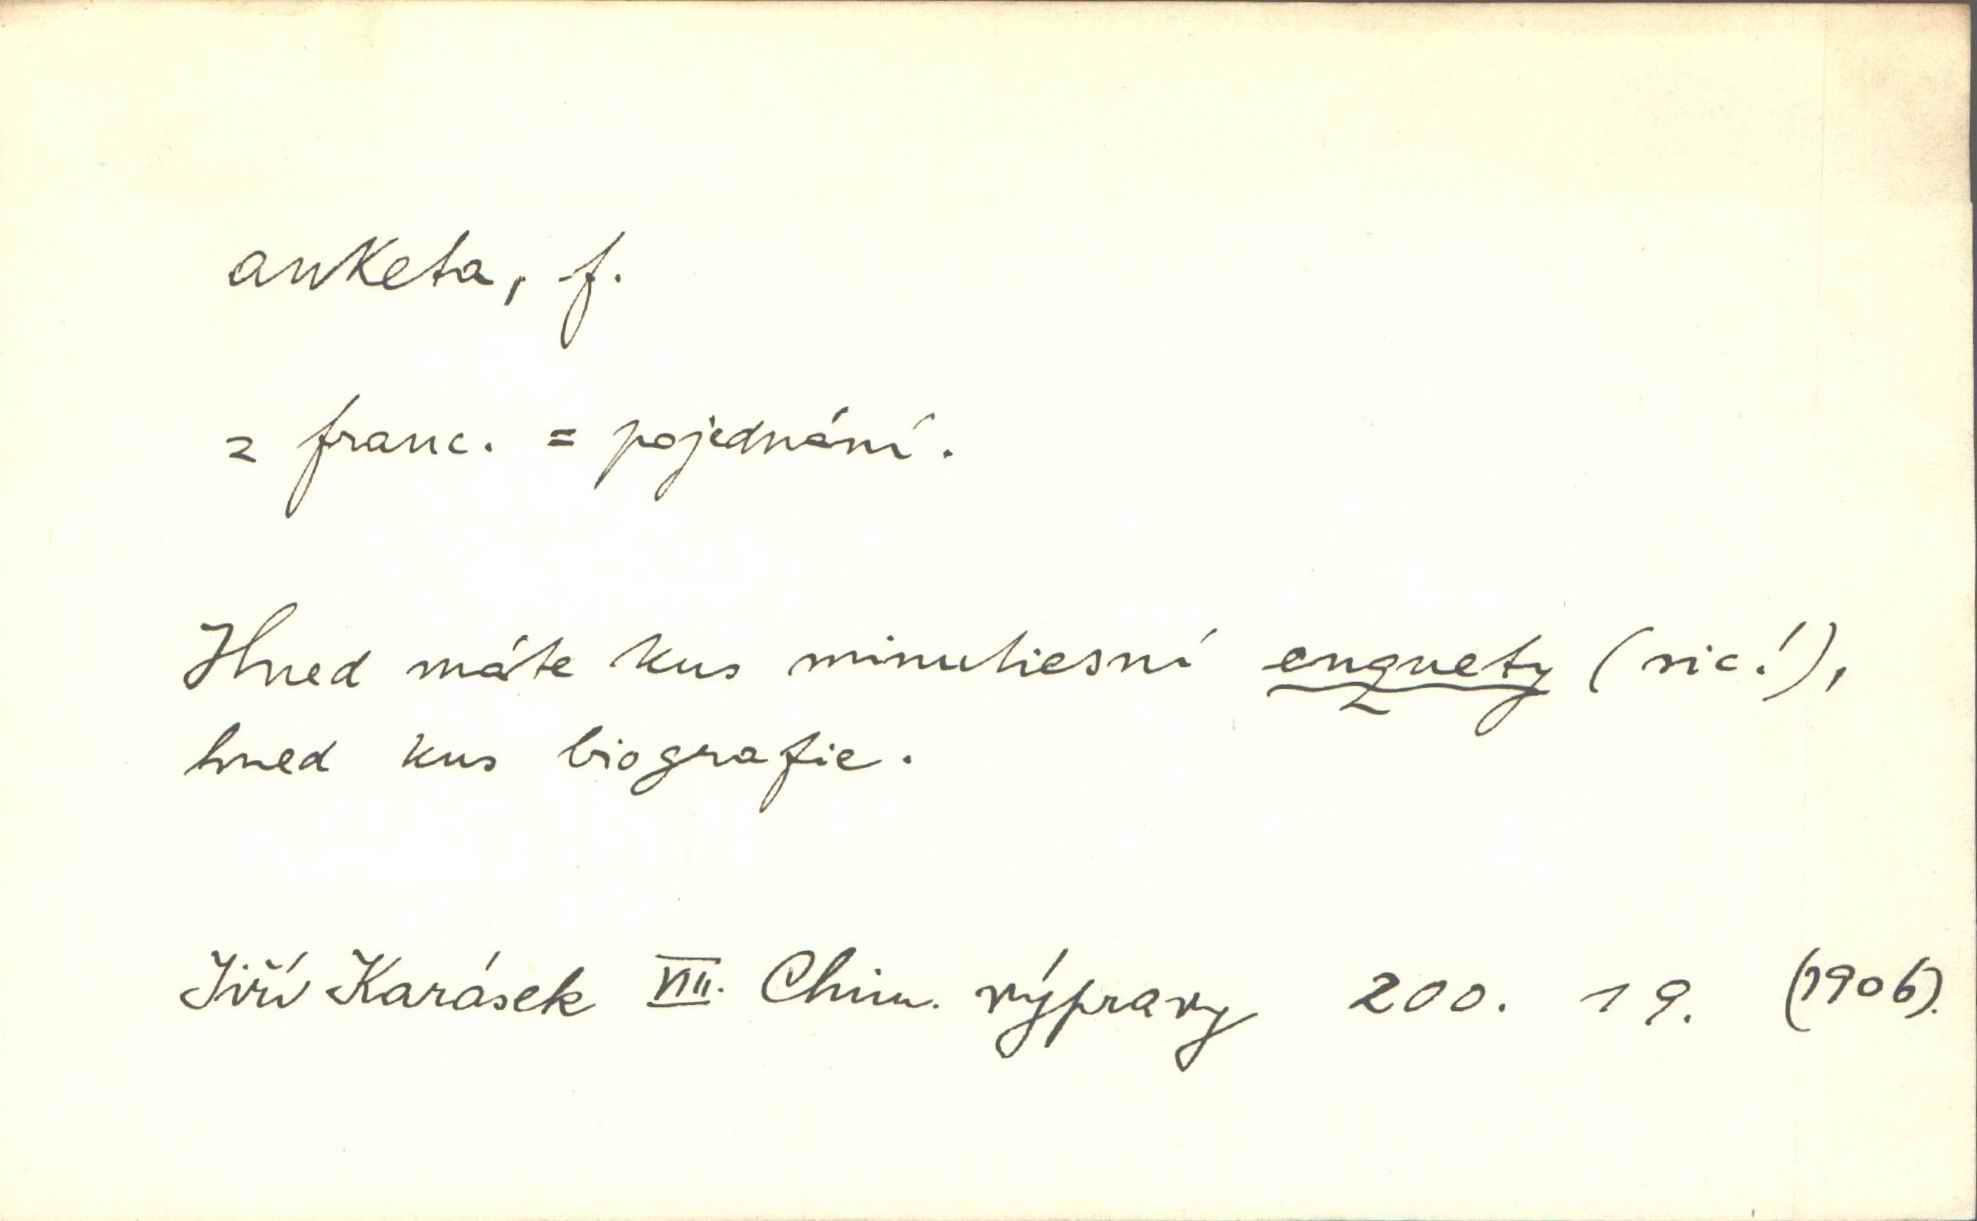 anketa, f.
z franc. = pojednání.
Hned máte kus minutiesní enquety (sic!),
hned kus biografie.
Jiří Karásek VII. Chim. výpravy 200. 19. (1906).